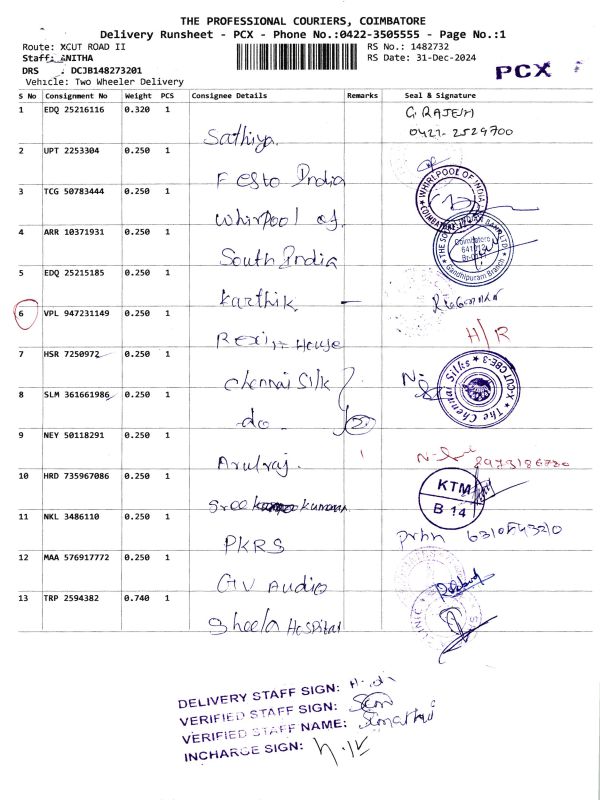 THE PROFESSIONAL COURIERS, COIMBATORE
Delivery Runsheet - PCX - Phone No.:0422-3505555 - Page No.:1
Route: XCUT ROAD II RS No.: 1482732
Staff: ANITHA RS Date: 31-Dec-2024
DRS : DCJB148273201 PCX
Vehicle: Two Wheeler Delivery
S No Consignment No Weight PCS Consignee Details Remarks Seal & Signature
1 EDQ 25216116 0.320 1 Sathiya G. RAJESH
0421-2529700
2 UPT 2253304 0.250 1 Festo India
3 TCG 50783444 0.250 1 Whirlpool of. WHIRLPOOL OF INDIA
4 ARR 10371931 0.250 1 South India Coimbatore Gandhipuram Branch
5 EDQ 25215185 0.250 1 Karthik
6 VPL 947231149 0.250 1 House H/R
7 HSR 7250972 0.250 1 Chennai Silk The Chennai Silks CUT-CBE-3
8 SLM 361661986 0.250 1 do. 2
9 NEY 50118291 0.250 1 Arulraj.
10 HRD 735967086 0.250 1 Sree Kumaran KTM
B 14
11 NKL 3486110 0.250 1 PKRS
12 MAA 576917772 0.250 1 GV Audio
13 TRP 2594382 0.740 1 Sheela Hospital CLINIC
DELIVERY STAFF SIGN:
VERIFIED STAFF SIGN:
VERIFIED STAFF NAME: Sumathi
INCHARGE SIGN: